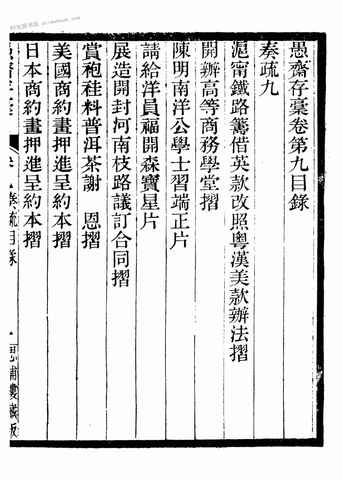 愚齋存稾卷第九目錄
奏疏九
滬甯鐵路籌借英款改照粵漢美款辦法摺
開辦高等商務學堂摺
陳明南洋公學士習端正片
請給洋員福開森寶星片
展造開封河南枝路議訂合同摺
賞袍褂料普洱茶謝 恩摺
美國商約畫押進呈約本摺
日本商約畫押進呈約本摺
奏疏目錄
思補樓藏版